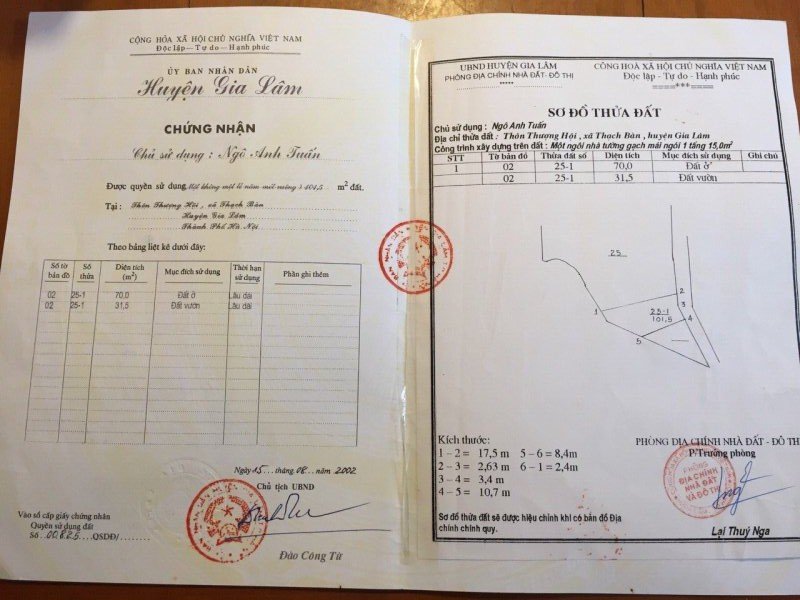 CỘNG HÒA XÃ HỘI CHỦ NGHĨA VIỆT NAM
Độc lập - Tự do - Hạnh phúc
ỦY BAN NHÂN DÂN
Huyện Gia Lâm
CHỨNG NHẬN
Chủ sử dụng : Ngô Anh Tuấn
Được quyền sử dụng Một không một lẻ năm mét vuông ) 101,5 m2 đất.
Tại : Thôn Thượng Hội , xã Thạch Bàn
Huyện Gia Lâm
Thành Phố Hà Nội
Theo bảng liệt kê dưới đây:
Số tờ bản đồ Số thửa Diện tích (m2) Mục đích sử dụng Thời hạn sử dụng Phần ghi thêm
02 25-1 70,0 Đất ở Lâu dài
02 25-1 31,5 Đất vườn Lâu dài
Ngày 15 tháng 08 năm 2002
Chủ tịch UBND
Vào sổ cấp giấy chứng nhận
Quyền sử dụng đất
Số 00825 QSDĐ/
Đào Công Từ
UBND HUYỆN GIA LÂM
PHÒNG ĐỊA CHÍNH NHÀ ĐẤT- ĐÔ THỊ
CÔNG HOÀ XÃ HỘI CHỦ NGHĨA VIỆT NAM
Độc lập - Tự do - Hạnh phúc
***
SƠ ĐỒ THỬA ĐẤT
Chủ sử dụng : Ngô Anh Tuấn
Địa chỉ thửa đất : Thôn Thượng Hội , xã Thạch Bàn , huyện Gia Lâm
Công trình xây dựng trên đất: Một ngôi nhà tường gạch mái ngói 1 tầng 15,0m2
STT Tờ bản đồ Thửa đất số Diện tích Mục đích sử dụng Ghi chú
1 02 25-1 70,0 Đất ở
02 25-1 31,5 Đất vườn
25
2
1
3
25-1
101,5
4
5
Kích thước:
1 - 2 = 17,5 m 5 - 6 = 8,4m
2 - 3 = 2,63 m 6 - 1 = 2,4m
3 - 4 = 3,4 m
4 - 5 = 10,7 m
PHÒNG ĐỊA CHÍNH NHÀ ĐẤT - ĐÔ THỊ
P/Trưởng phòng
PHÒNG
ĐỊA CHÍNH
NHÀ ĐẤT
VÀ ĐÔ THỊ
Sơ đồ thửa đất sẽ được hiệu chỉnh khi có bản đồ Địa
chính chính quy.
Lại Thuý Nga